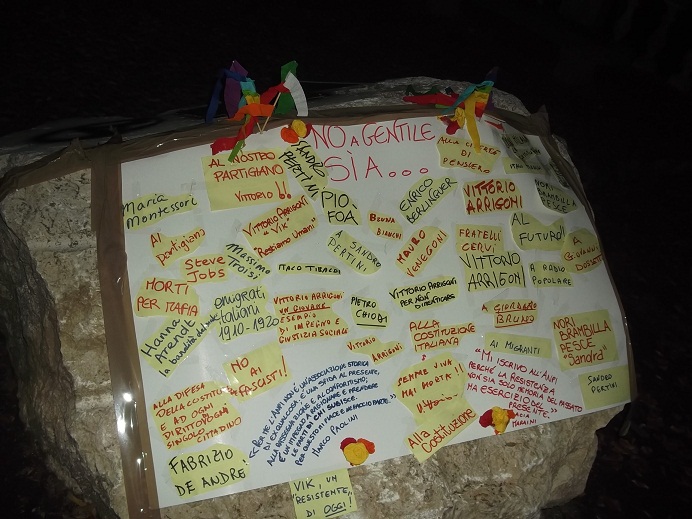 NO A GENTILE
SÌA...
AL NOSTRO
PARTIGIANO
VITTORIO!!
SANDRO
PERTINI
ALLA
DI
PENSIERO
MARIA
MONTESSORI
PIO
FOA
ENRICO
BERLINGUER
VITTORIO
ARRIGONI
NORI
BRAMBILLA
PESCE
VITTORIO ARRIGONI
"VIK"
"Restiamo Umani"
BRUNA
BIANCHI
AL
FUTURO!!
Ai
partigiani
Steve
Jobs
Massimo
Troisi
A SANDRO
PERTINI
MAURO
VENEGONI
FRATELLI
CERVI
VITTORIO
ARRIGONI
A
GIOVANNI
ITALO TIBALDI
A RADIO
POPOLARE
MORTI
PER MAFIA
emigrati
italiani
1910-1920
VITTORIO ARRIGONI
UN GIOVANE
ESEMPIO
DI IMPEGNO E
GIUSTIZIA SOCIALE
PIETRO
CHIODI
VITTORIO ARRIGONI
PER NON
DIMENTICARE
A GIORDANO
BRUNO
Hannah
Arendt
la banalità del male
ALLA
COSTITUZIONE
ITALIANA
AI MIGRANTI
NORI
BRAMBILLA
PESCE
"Sandra"
NO AI
FASCISTI!
VITTORIO
ARRIGONI
SEMPRE VIVA
MAI MORTA
"MI ISCRIVO ALL'ANPI
PERCHÉ LA RESISTENZA
NON SIA SOLO MEMORIA DEL PASSATO
MA ESERCIZIO DEL
PRESENTE."
DACIA
MARAINI
SANDRO
PERTINI
ALLA DIFESA
DELLA COSTITUZIONE
E AD OGNI
DIRITTO D'OGNI
SINGOLO
CITTADINO
<<PER ME L'ANPI NON È UN'ASSOCIAZIONE STORICA
DI EX QUALCOSA, È UNA SFIDA AL PRESENTE,
ALLA RASSEGNAZIONE E AL CONFORMISMO;
È UN IMPEGNO A RAGIONARE E PRENDERE
LE PARTI DI CHI SUBISCE.
PER QUESTO MI PIACE E NE FACCIO PARTE.>>
MARCO PAOLINI
Alla
Costituzione
FABRIZIO
DE ANDRE'
VIK, UN
"RESISTENTE"
DI OGGI!